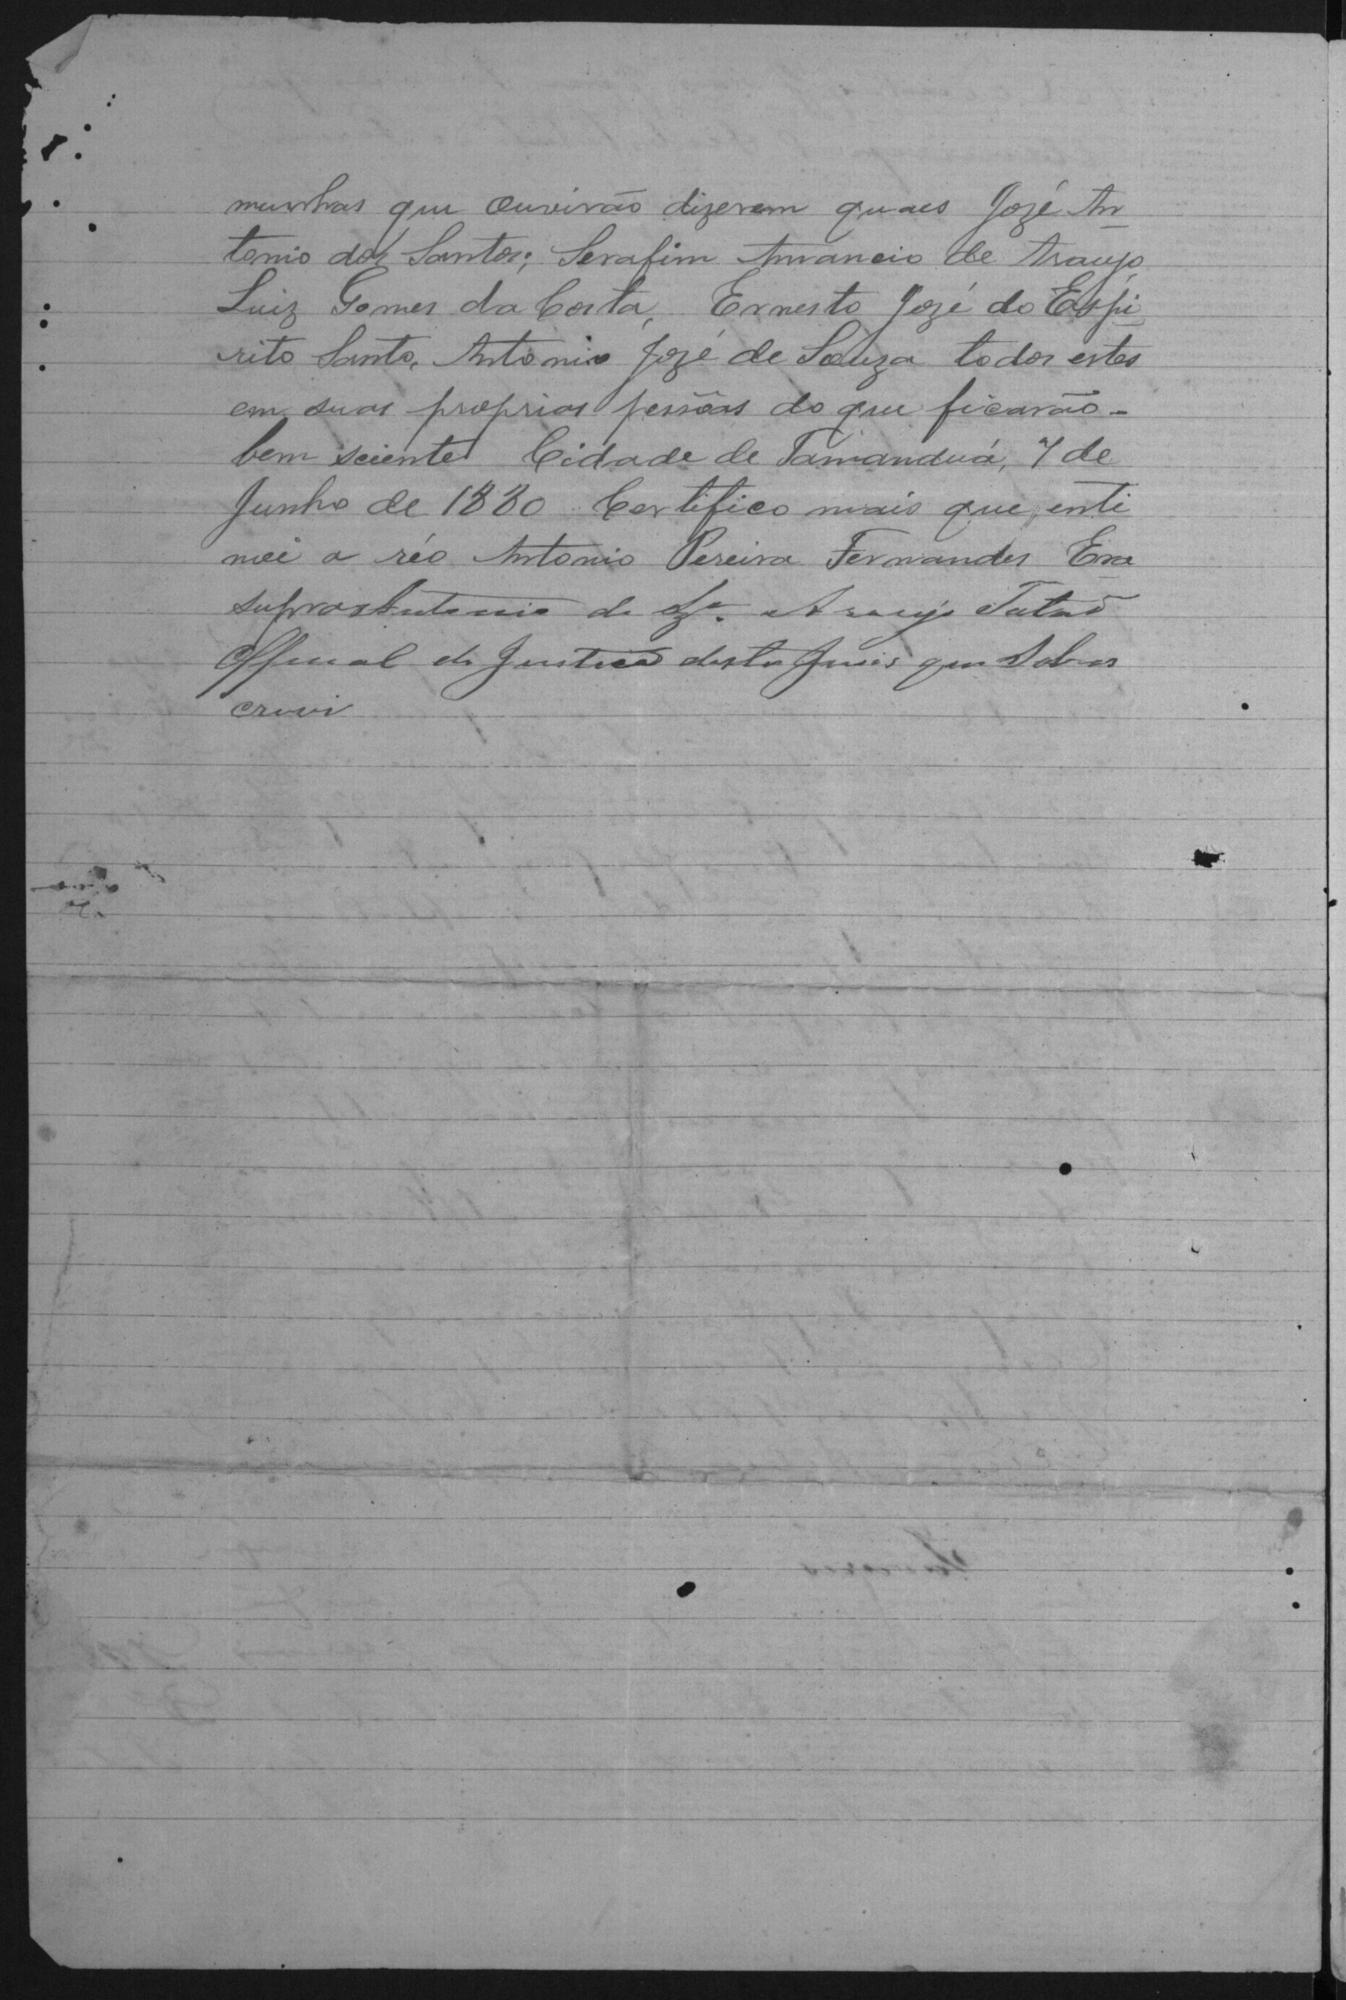 munhas que ouvirão dizerem quaes Jozé An
tonio dos Santos; Serafim Amancio de Araujo
Luiz Gomes da Costa, Ernesto Jozé do Espi
rito Santo, Antonio Jozé de Souza todos estes
em suas proprias pessôas do que ficarão -
bem sciente Cidade de Tamanduá, 7 de
Junho de 1880 Certifico mais que enti
mei o réo Antonio Pereira Fernandes Era
supra de Araujo
Official de Justica deste que Sobes
crevi